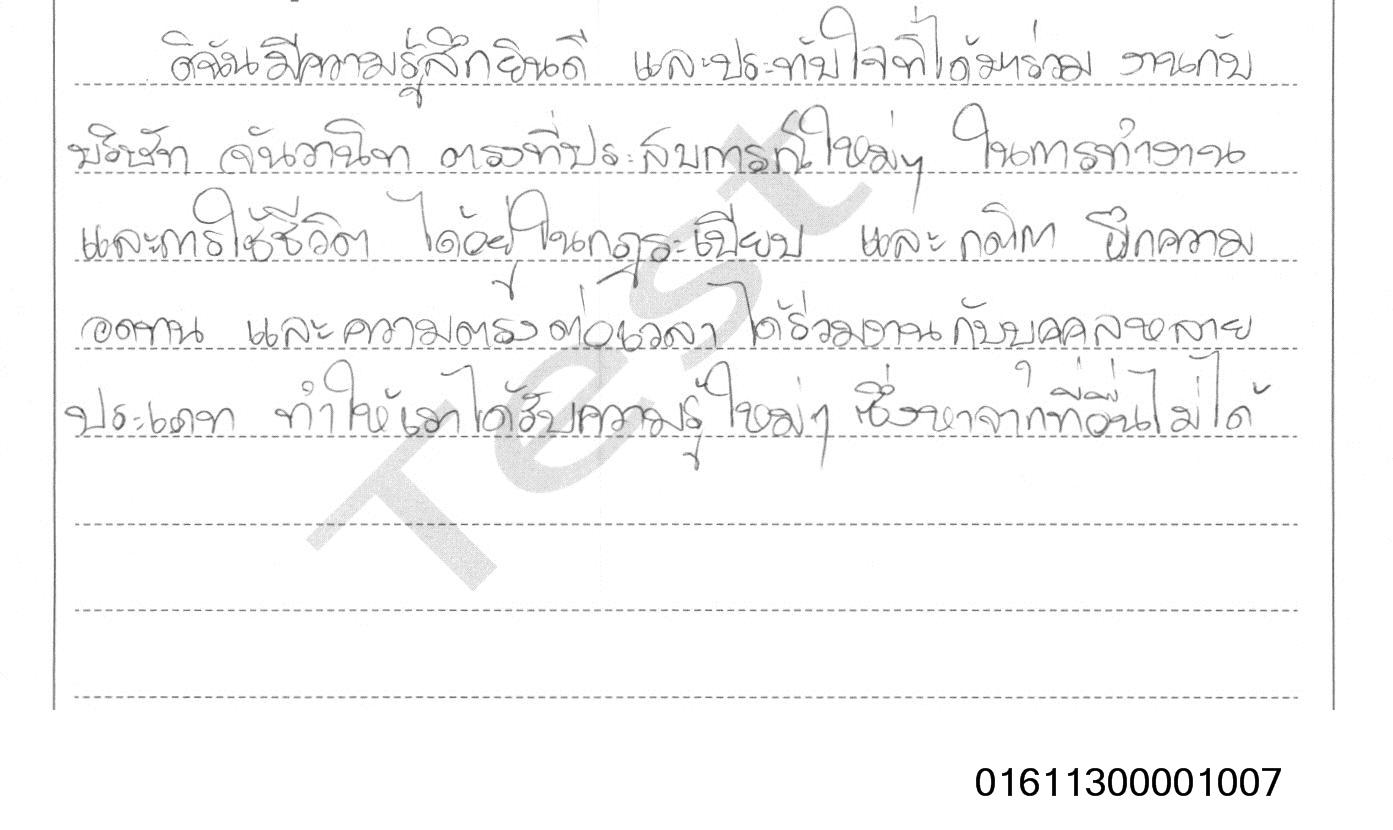 ดิฉันมีความรู้สึกยินดี และประทับใจที่ได้มาร่วม งานกับ
บริษัท จันวานิท ตรงที่ประสบการณ์ใหม่ๆ ในการทำงาน
และการใช้ชีวิต ได้อยู่ในกฎระเบียบ และ กติกา ฝึกความ
อดทน และความตรงต่อเวลา ได้ร่วมงานกับบุคคลหลาย
ประเภท ทำให้เราได้รับความรู้ใหม่ๆ ซึ่งหาจากที่อื่นไม่ได้
Test
01611300001007